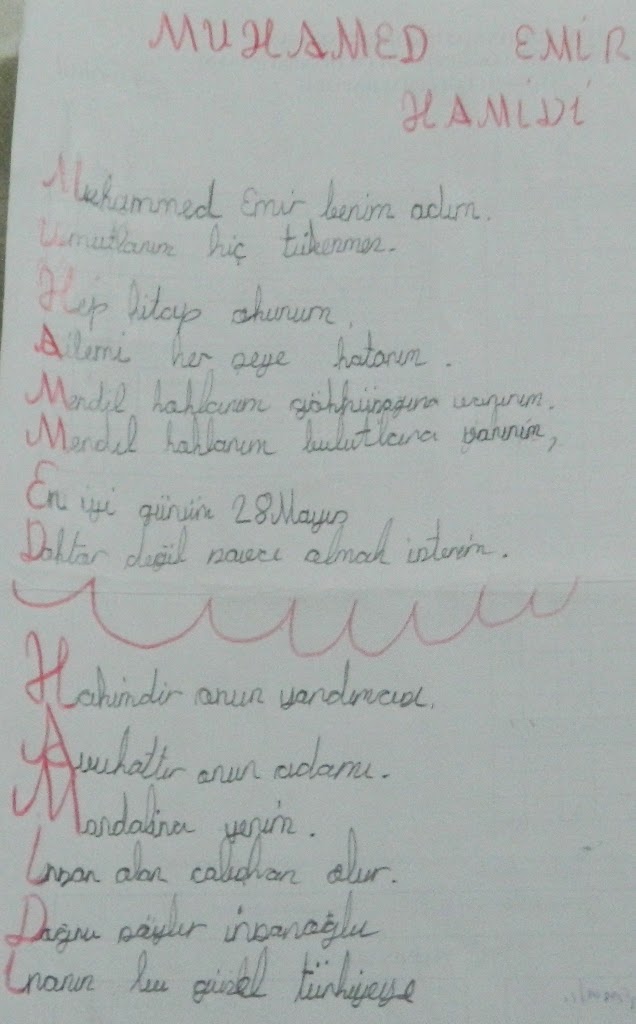 MUHAMED EMİR
HAMİDİ
Muhammed Emir benim adım.
Umutlarım hiç tükenmez.
Hep kitap okurum,
Ailemi her şeye katarım.
Mendil katlarım gökkuşağına varırım.
Mendil katlarım bulutlara varırım,
En iyi günüm 28 Mayıs
Doktor değil savcı olmak isterim.
Hakimdir onun yardımcısı,
Avukattır onun adamı.
Mandalina yerim.
İnsan olan çalışkan olur.
Doğru söyler insanoğlu
İnanın bu güzel türkiyeye